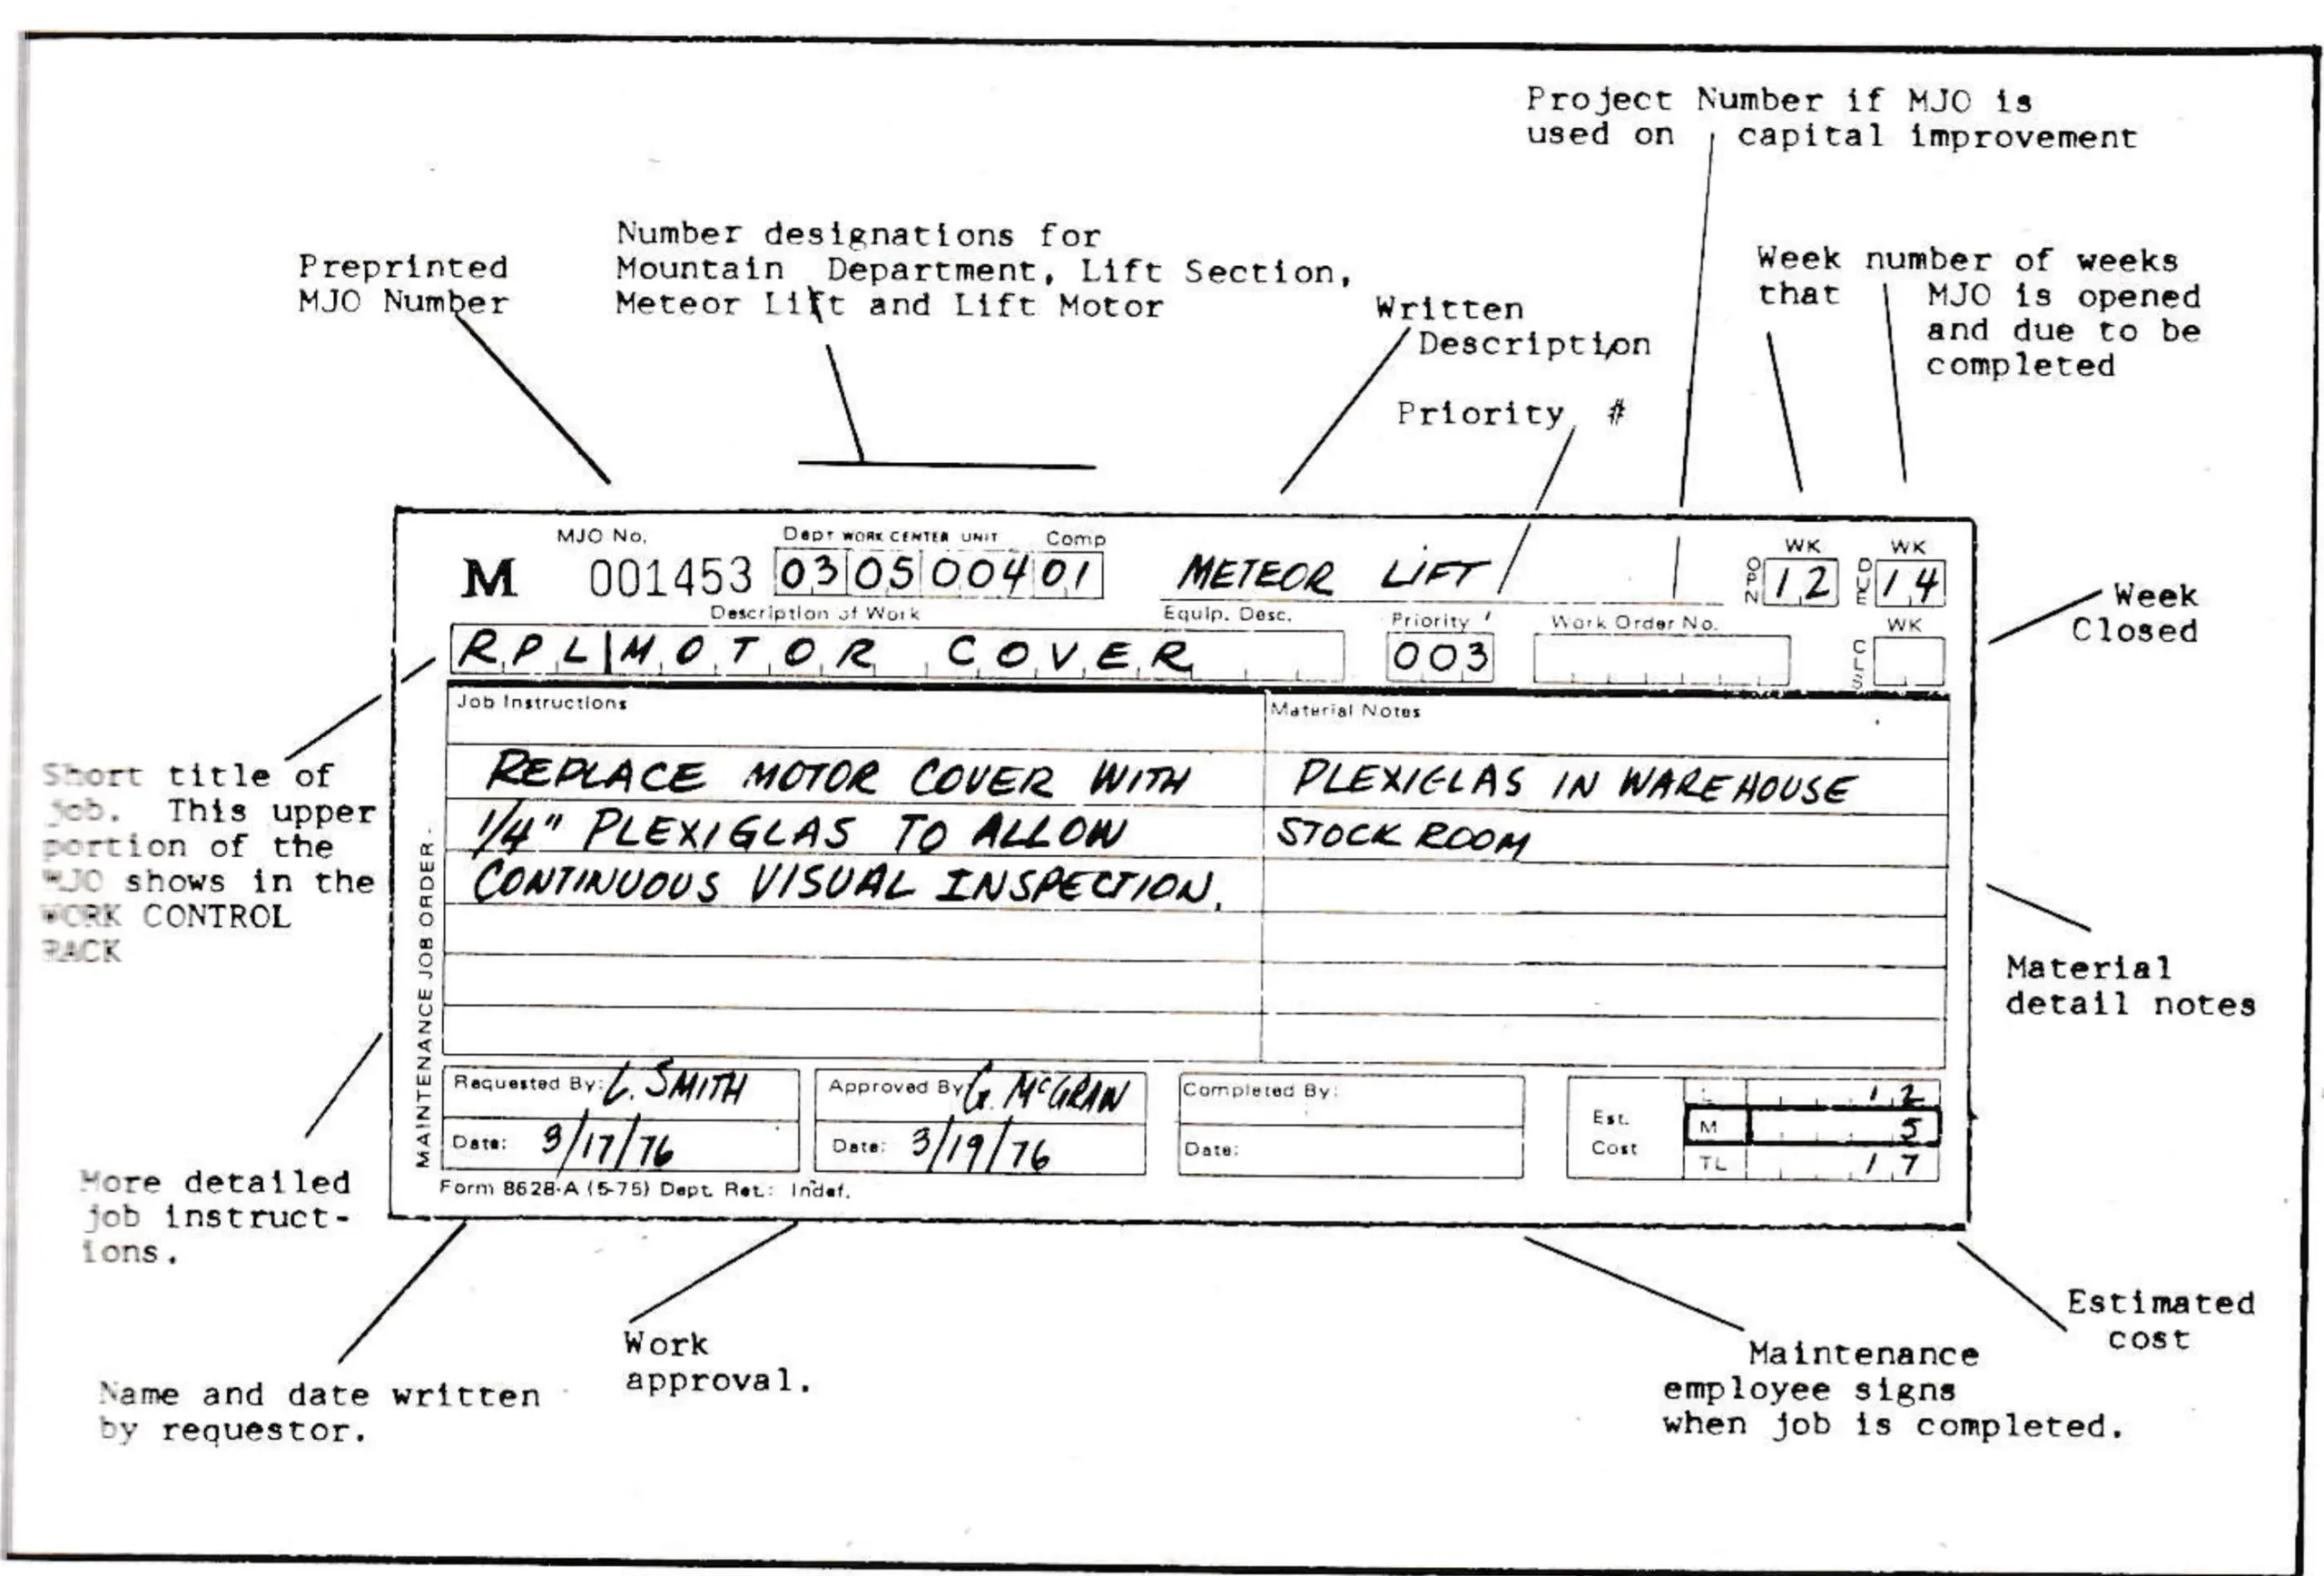 Project Number if MJO is
used on capital improvement
Number designations for
Mountain Department, Lift Section,
Meteor Lift and Lift Motor
Preprinted
MJO Number
Week number of weeks
that MJO is opened
and due to be
completed
Written
Description
Priority #
MJO No.
Dept WORK CENTER UNIT Comp
WK WK
M 001453 03 05 004 01 METEOR LIFT OPN 12 DUE 14
Description of Work Equip. Desc. Priority Work Order No. WK
RPL MOTOR COVER 003 CLS
Week
Closed
Job Instructions Material Notes
REPLACE MOTOR COVER WITH PLEXIGLAS IN WAREHOUSE
1/4" PLEXIGLAS TO ALLOW STOCK ROOM
CONTINUOUS VISUAL INSPECTION.
Short title of
job. This upper
portion of the
MJO shows in the
WORK CONTROL
RACK
MAINTENANCE JOB ORDER
Material
detail notes
Requested By: L. SMITH Approved By: G. McGRAN Completed By:
Date: 3/17/76 Date: 3/19/76 Date:
Est.
Cost
L 12
M 5
TL 17
Form 8628-A (5-75) Dept. Ret.: Indef.
More detailed
job instruct-
ions.
Name and date written
by requestor.
Work
approval.
Maintenance
employee signs
when job is completed.
Estimated
cost